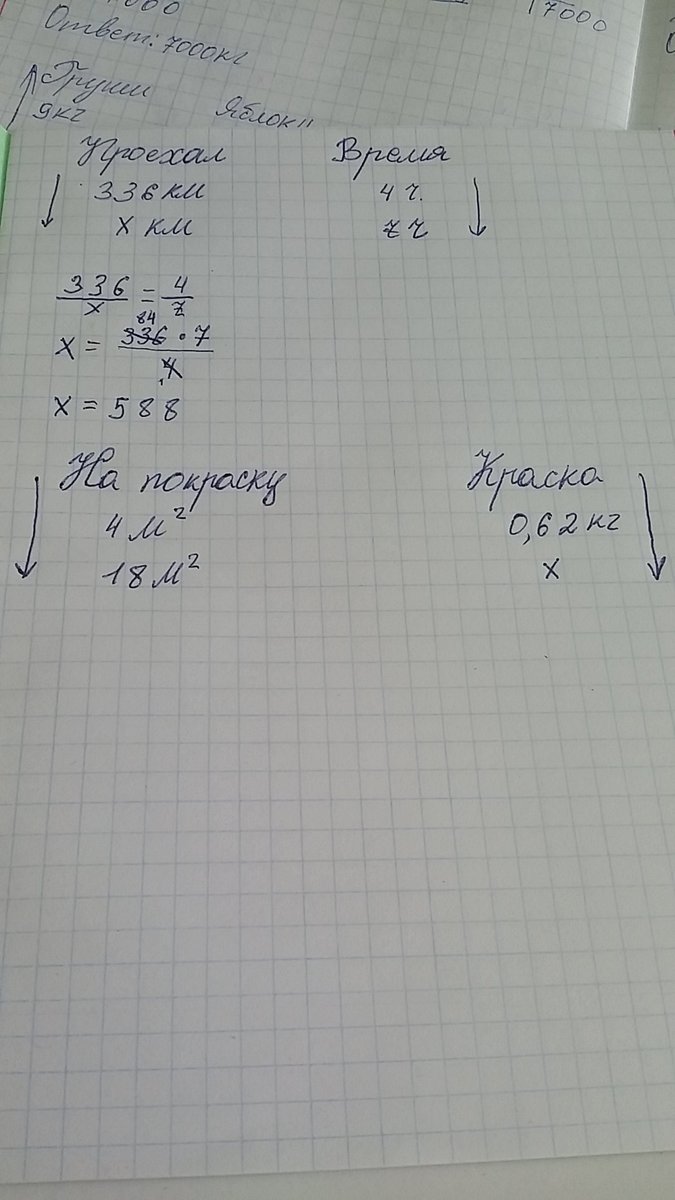 000
17000
Ответ: 7000кг
Груши
9кг Яблоки
Проехал Время
336 км 4 ч.
x км 7 ч
336/x = 4/7
x = 336 84 · 7 / 4 1
x = 588
На покраску Краска
4 м² 0,62 кг
18 м² x